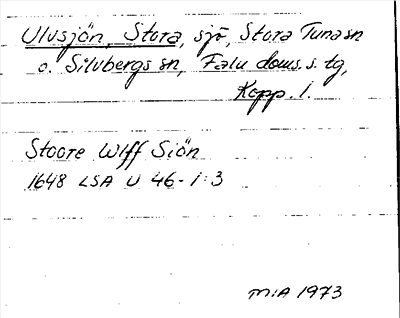 Ulvsjön, Stora, sjö, Stora Tuna sn
o. Silvbergs sn, Falu doms. s. tg,
Kopp. l.
Stoore Wlff Siön
1648 LSA U 46-1:3
M:A 1973